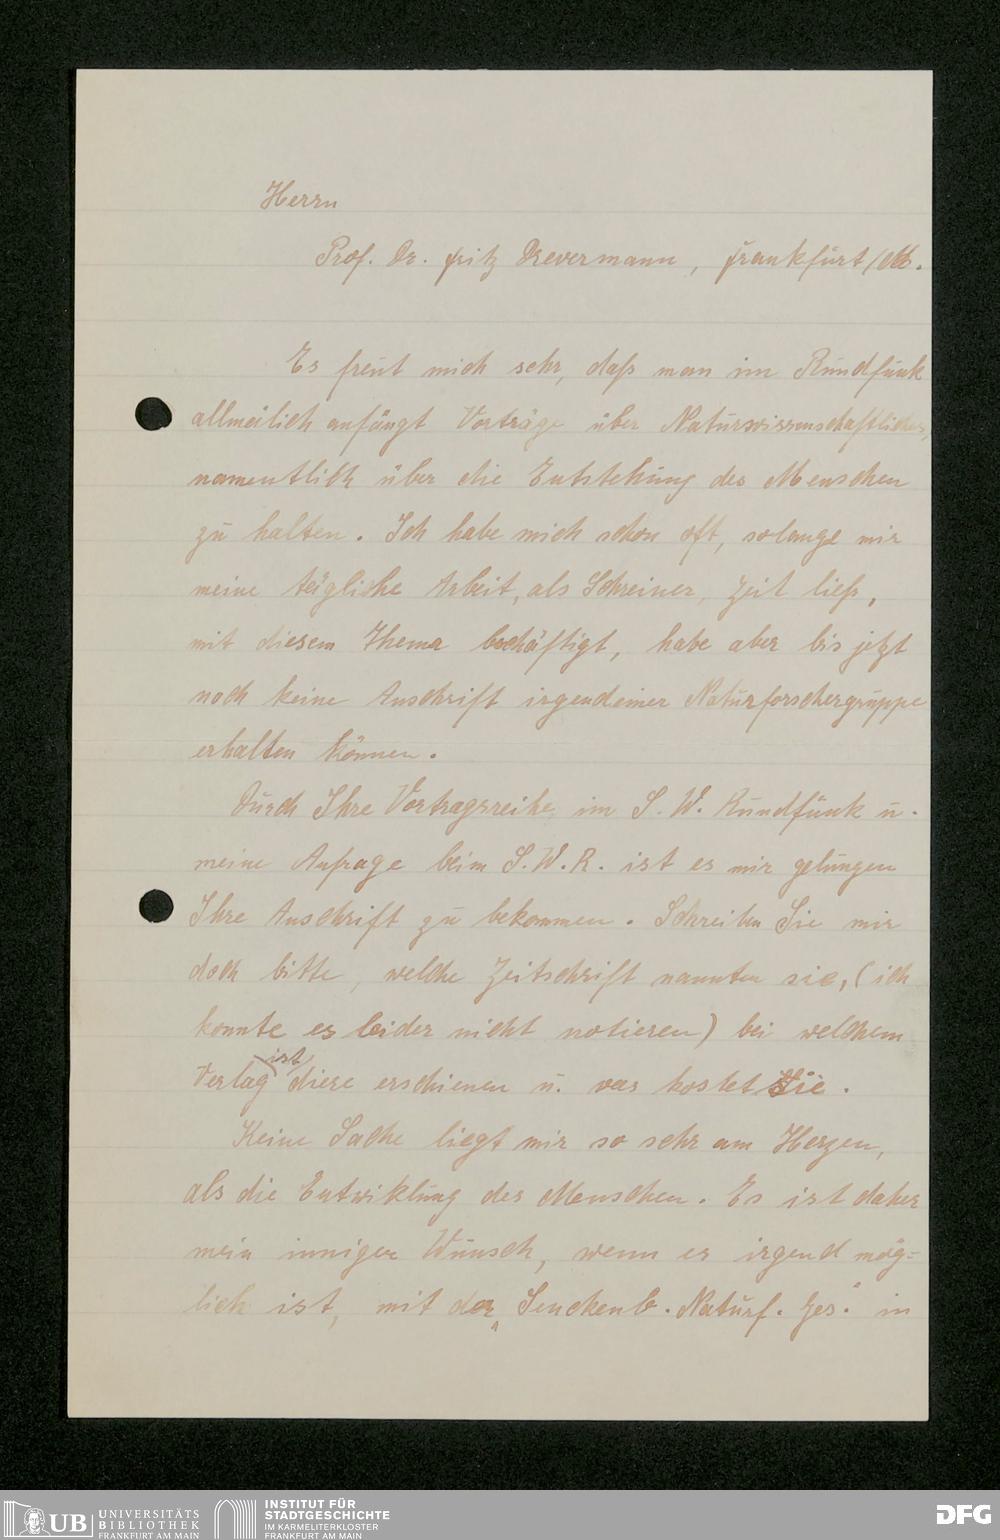 Herrn
Prof. Dr. Fritz Drevermann, Frankfurt/M.
Es freut mich sehr, daß man im Rundfunk
allmälich anfängt Vorträge über Naturwissenschaftliches,
namentlich über die Entstehung des Menschen
zu halten. Ich habe mich schon oft, solange mir
meine tägliche Arbeit, als Schreiner, Zeit ließ,
mit diesem Thema beschäftigt, habe aber bis jetzt
noch keine Anschrift irgendeiner Naturforschergruppe
erhalten können.
Durch Ihre Vortragsreihe im S. W. Rundfunk u.
meine Anfrage beim S.W.R. ist es mir gelungen
Ihre Anschrift zu bekommen. Schreiben Sie mir
doch bitte, welche Zeitschrift nannten sie, (ich
konnte es leider nicht notieren) bei welchem
ist
Verlag diese erschienen u. was kostet Sie.
Keine Sache liegt mir so sehr am Herzen,
als die Entwiklung des Menschen. Es ist daher
mein inniger Wunsch, wenn es irgend mög=
lich ist, mit der „Senckenb. Naturf. Ges." in
UB UNIVERSITÄTS
BIBLIOTHEK
FRANKFURT AM MAIN
INSTITUT FÜR
STADTGESCHICHTE
IM KARMELITERKLOSTER
FRANKFURT AM MAIN
DFG